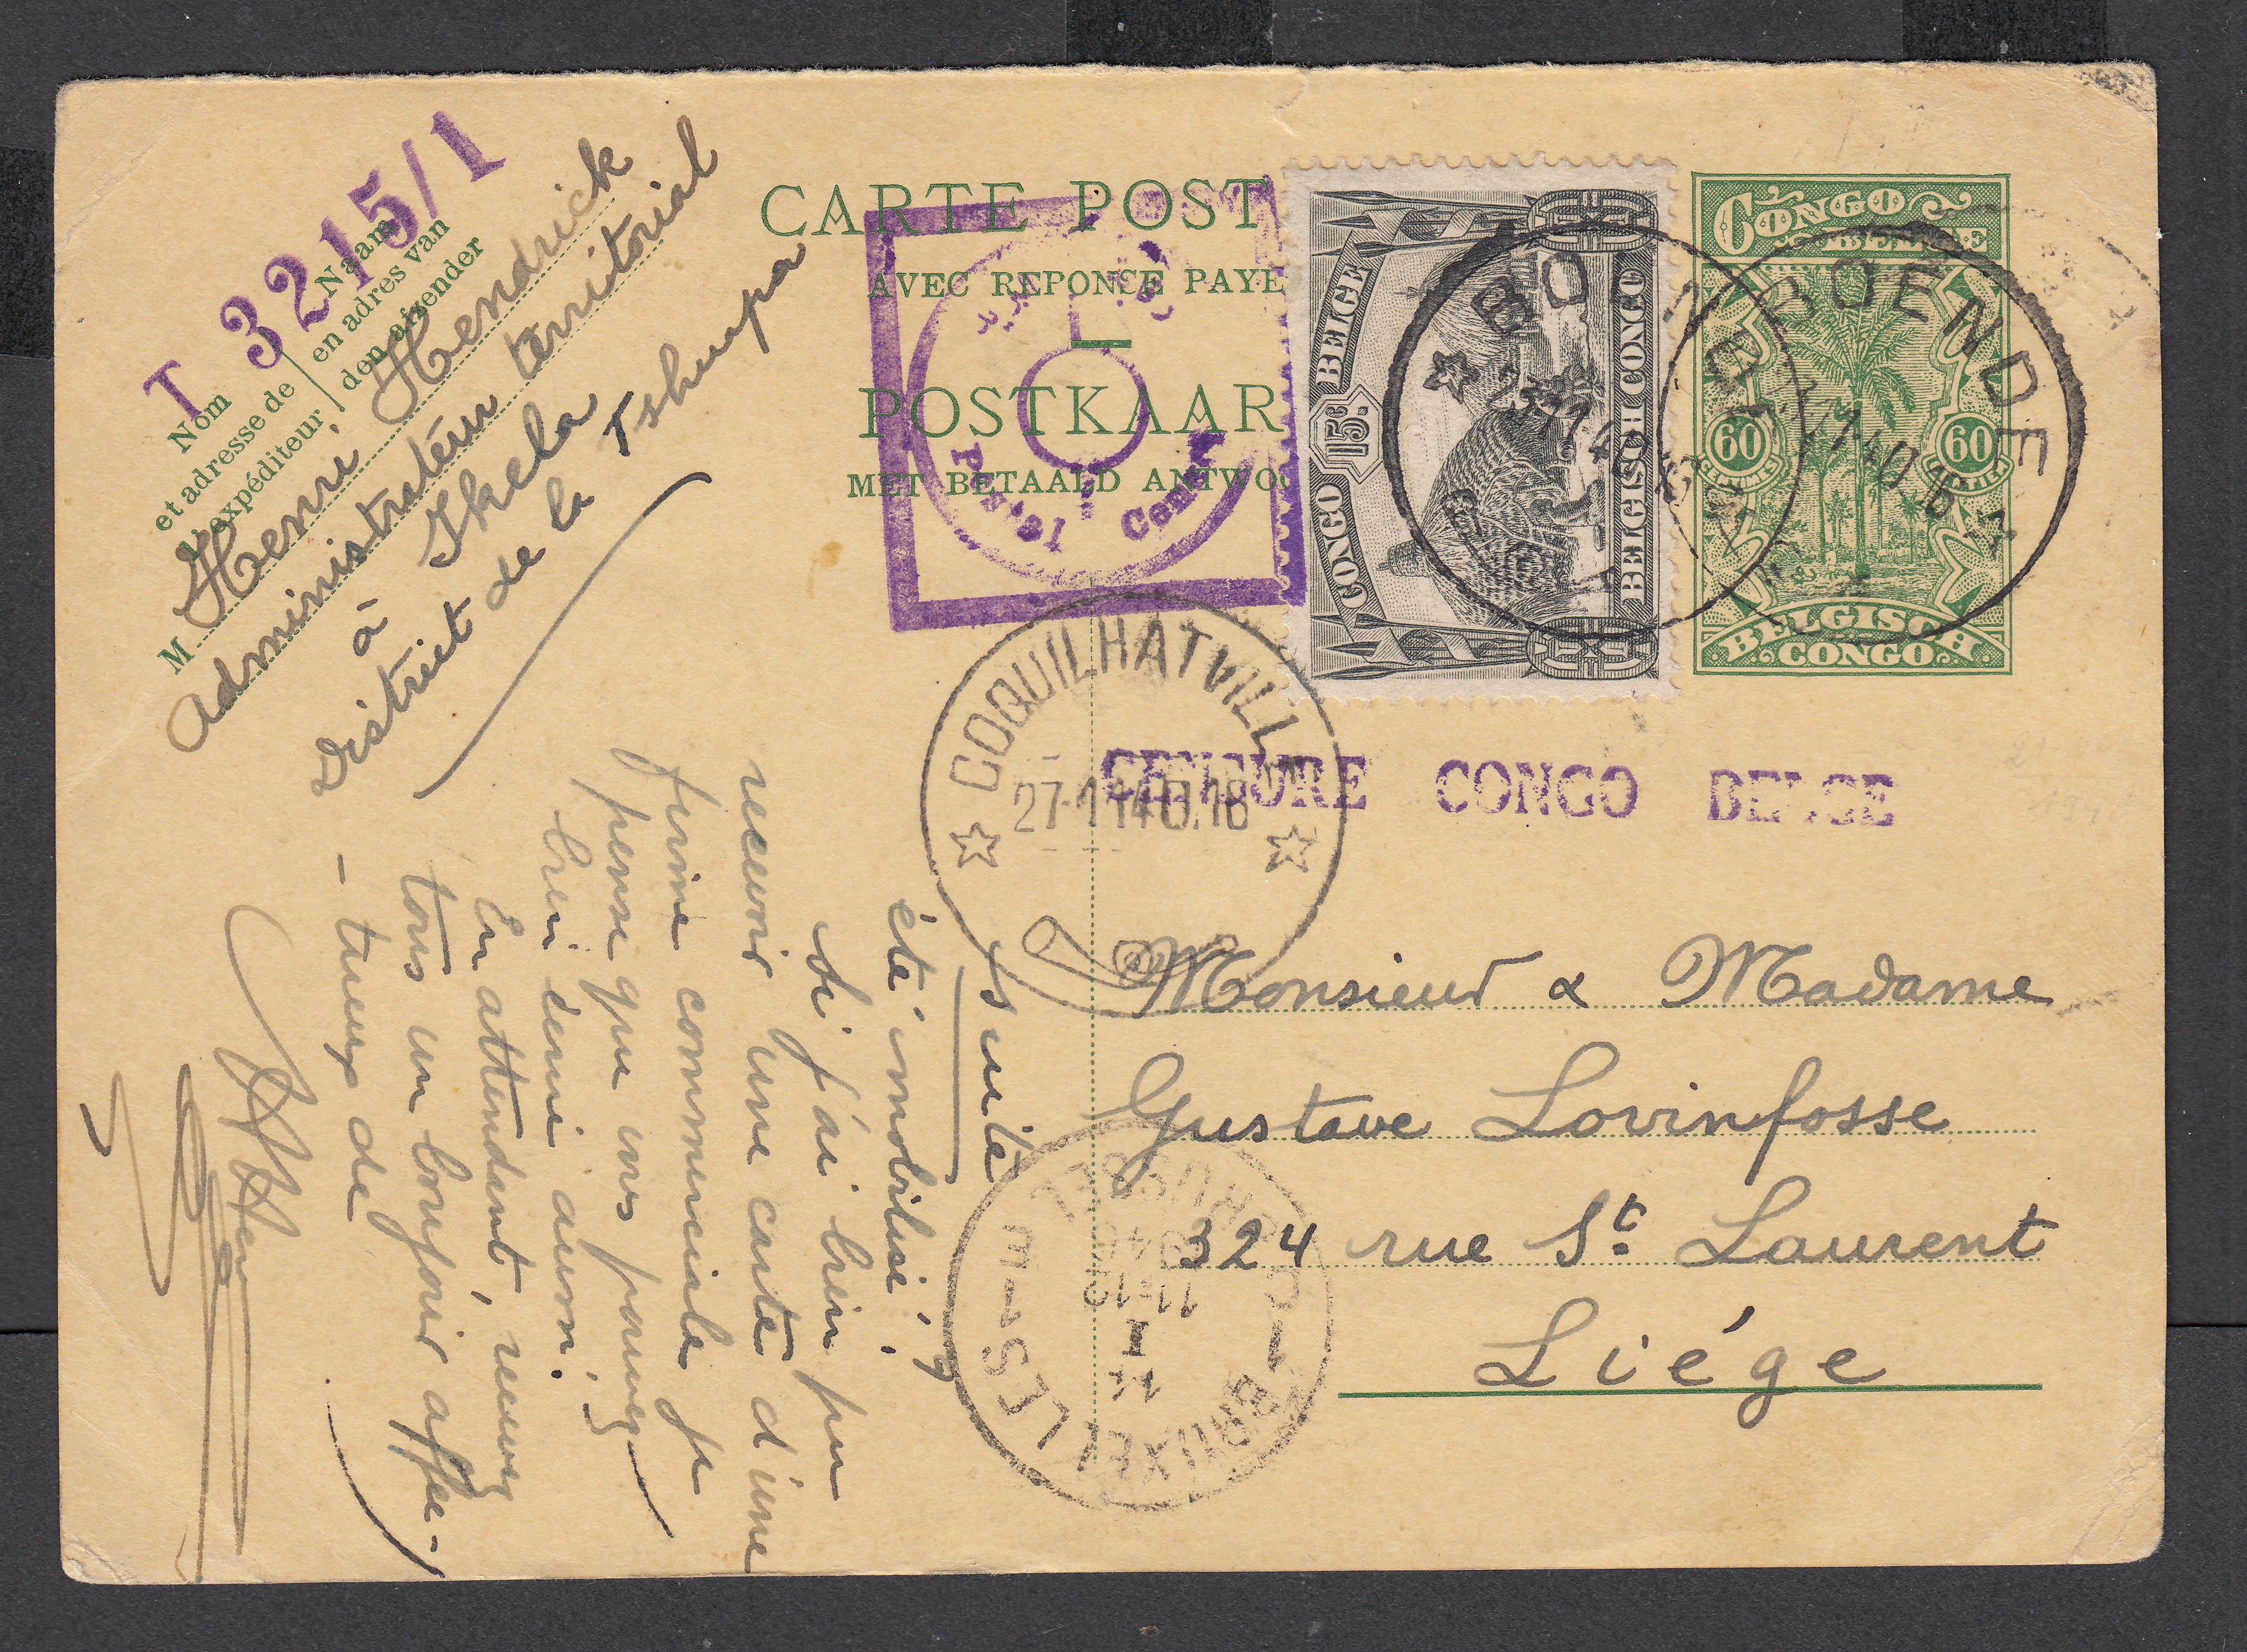 T 3215/1
Nom
et adresse de
l'expéditeur
Naam
en adres van
den afzender
M Henri Hendrick
Administrateur territorial
à Ikela
District de la Tshuapa
CARTE POST
AVEC REPONSE PAYE
POSTKAAR
MET BETAALD ANTWO
L
Postal Cens
CONGO 15c. BELGE
BELGISCH CONGO
BOENDE
CONGO
BELGE
60
60
BELGISCH
CONGO
BOENDE
1.40.16
COQUILHATVILL
27-1-40.18
CENSURE CONGO BELGE
Monsieur & Madame
Gustave Lovinfosse
324 rue St. Laurent
Liége
BRUSSEL
BRUXELLES
11-12
suite
été immobilisé,
si j'ai bien pu
recevoir une carte d'une
firme commerciale je
pense que vous pouvez
bien aussi.
En attendant, recevez
tous un bonjour affec-
-tueux de